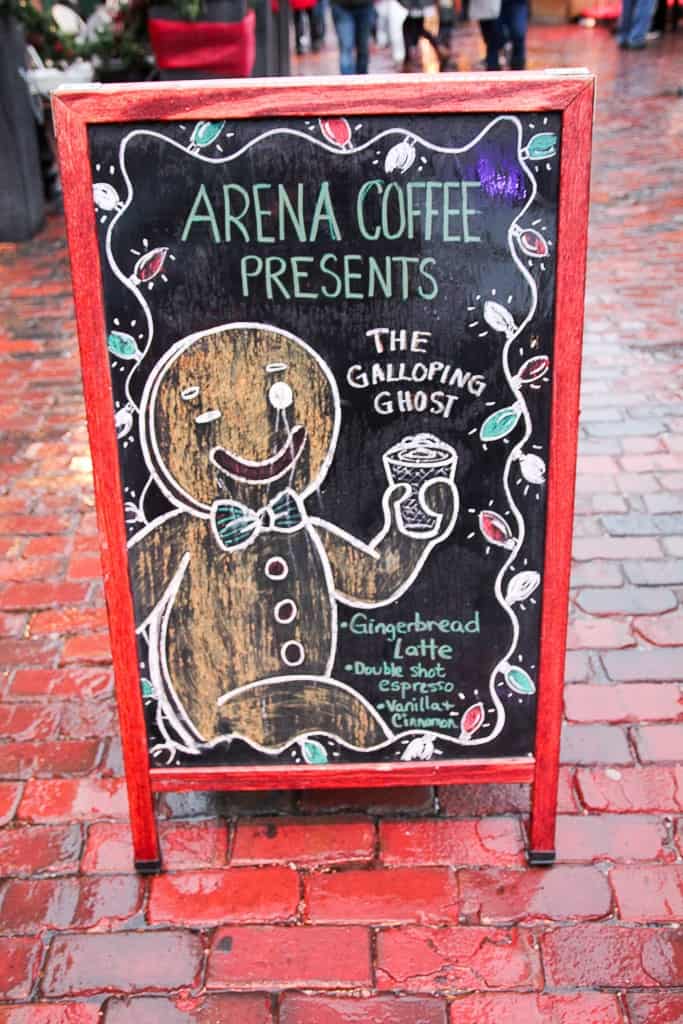 ARENA COFFEE
PRESENTS
THE
GALLOPING
GHOST
•Gingerbread
Latte
•Double shot
espresso
•Vanilla+
Cinnamon